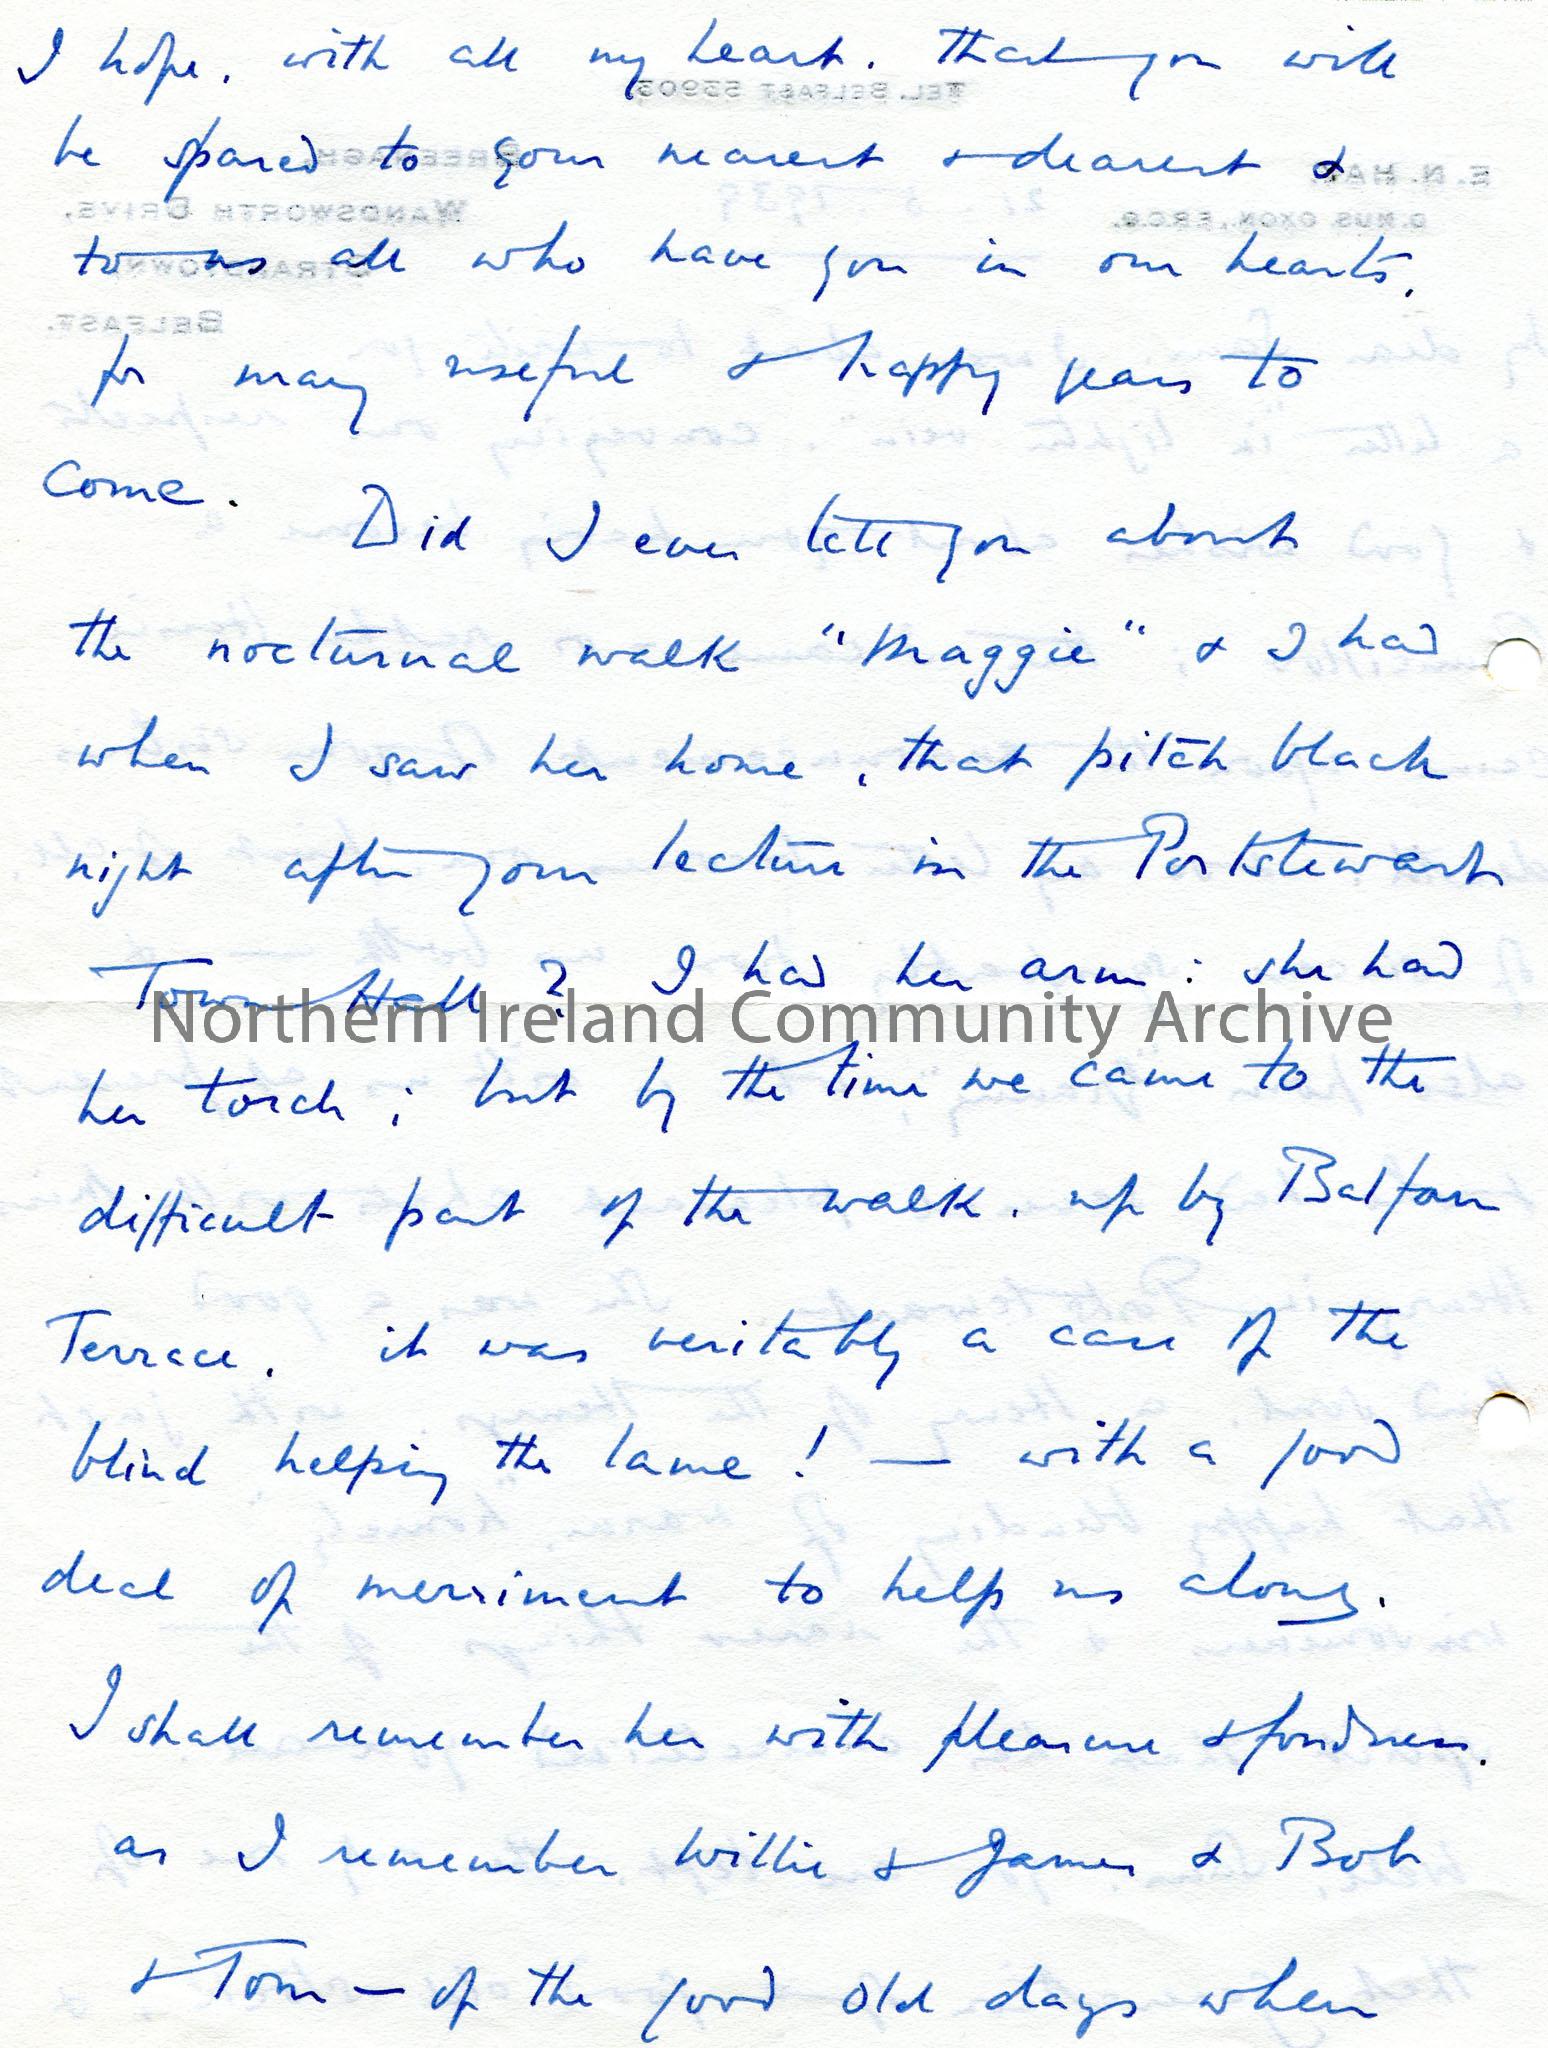 I hope, with all my heart, that you will
be spared to your nearest & dearest &
to us all who have you in our hearts,
for many useful & happy years to
come. Did I ever tell you about
the nocturnal walk "Maggie" & I had
when I saw her home, that pitch black
night after your lecture in the Portstewart
Town Hall? I had her arm: she had
Northern Ireland Community Archive
her torch; but by the time we came to the
difficult part of the walk, up by Balfour
Terrace, it was veritably a case of the
blind helping the lame! — with a good
deal of merriment to help us along.
I shall remember her with pleasure & fondness,
as I remember Willie & James & Bob
& Tom — of the good old days when
TEL. BELFAST 53903
E. N. HAY,
D. MUS. OXON., F.R.C.O.
WANDSWORTH DRIVE,
STRANDTOWN,
BELFAST.